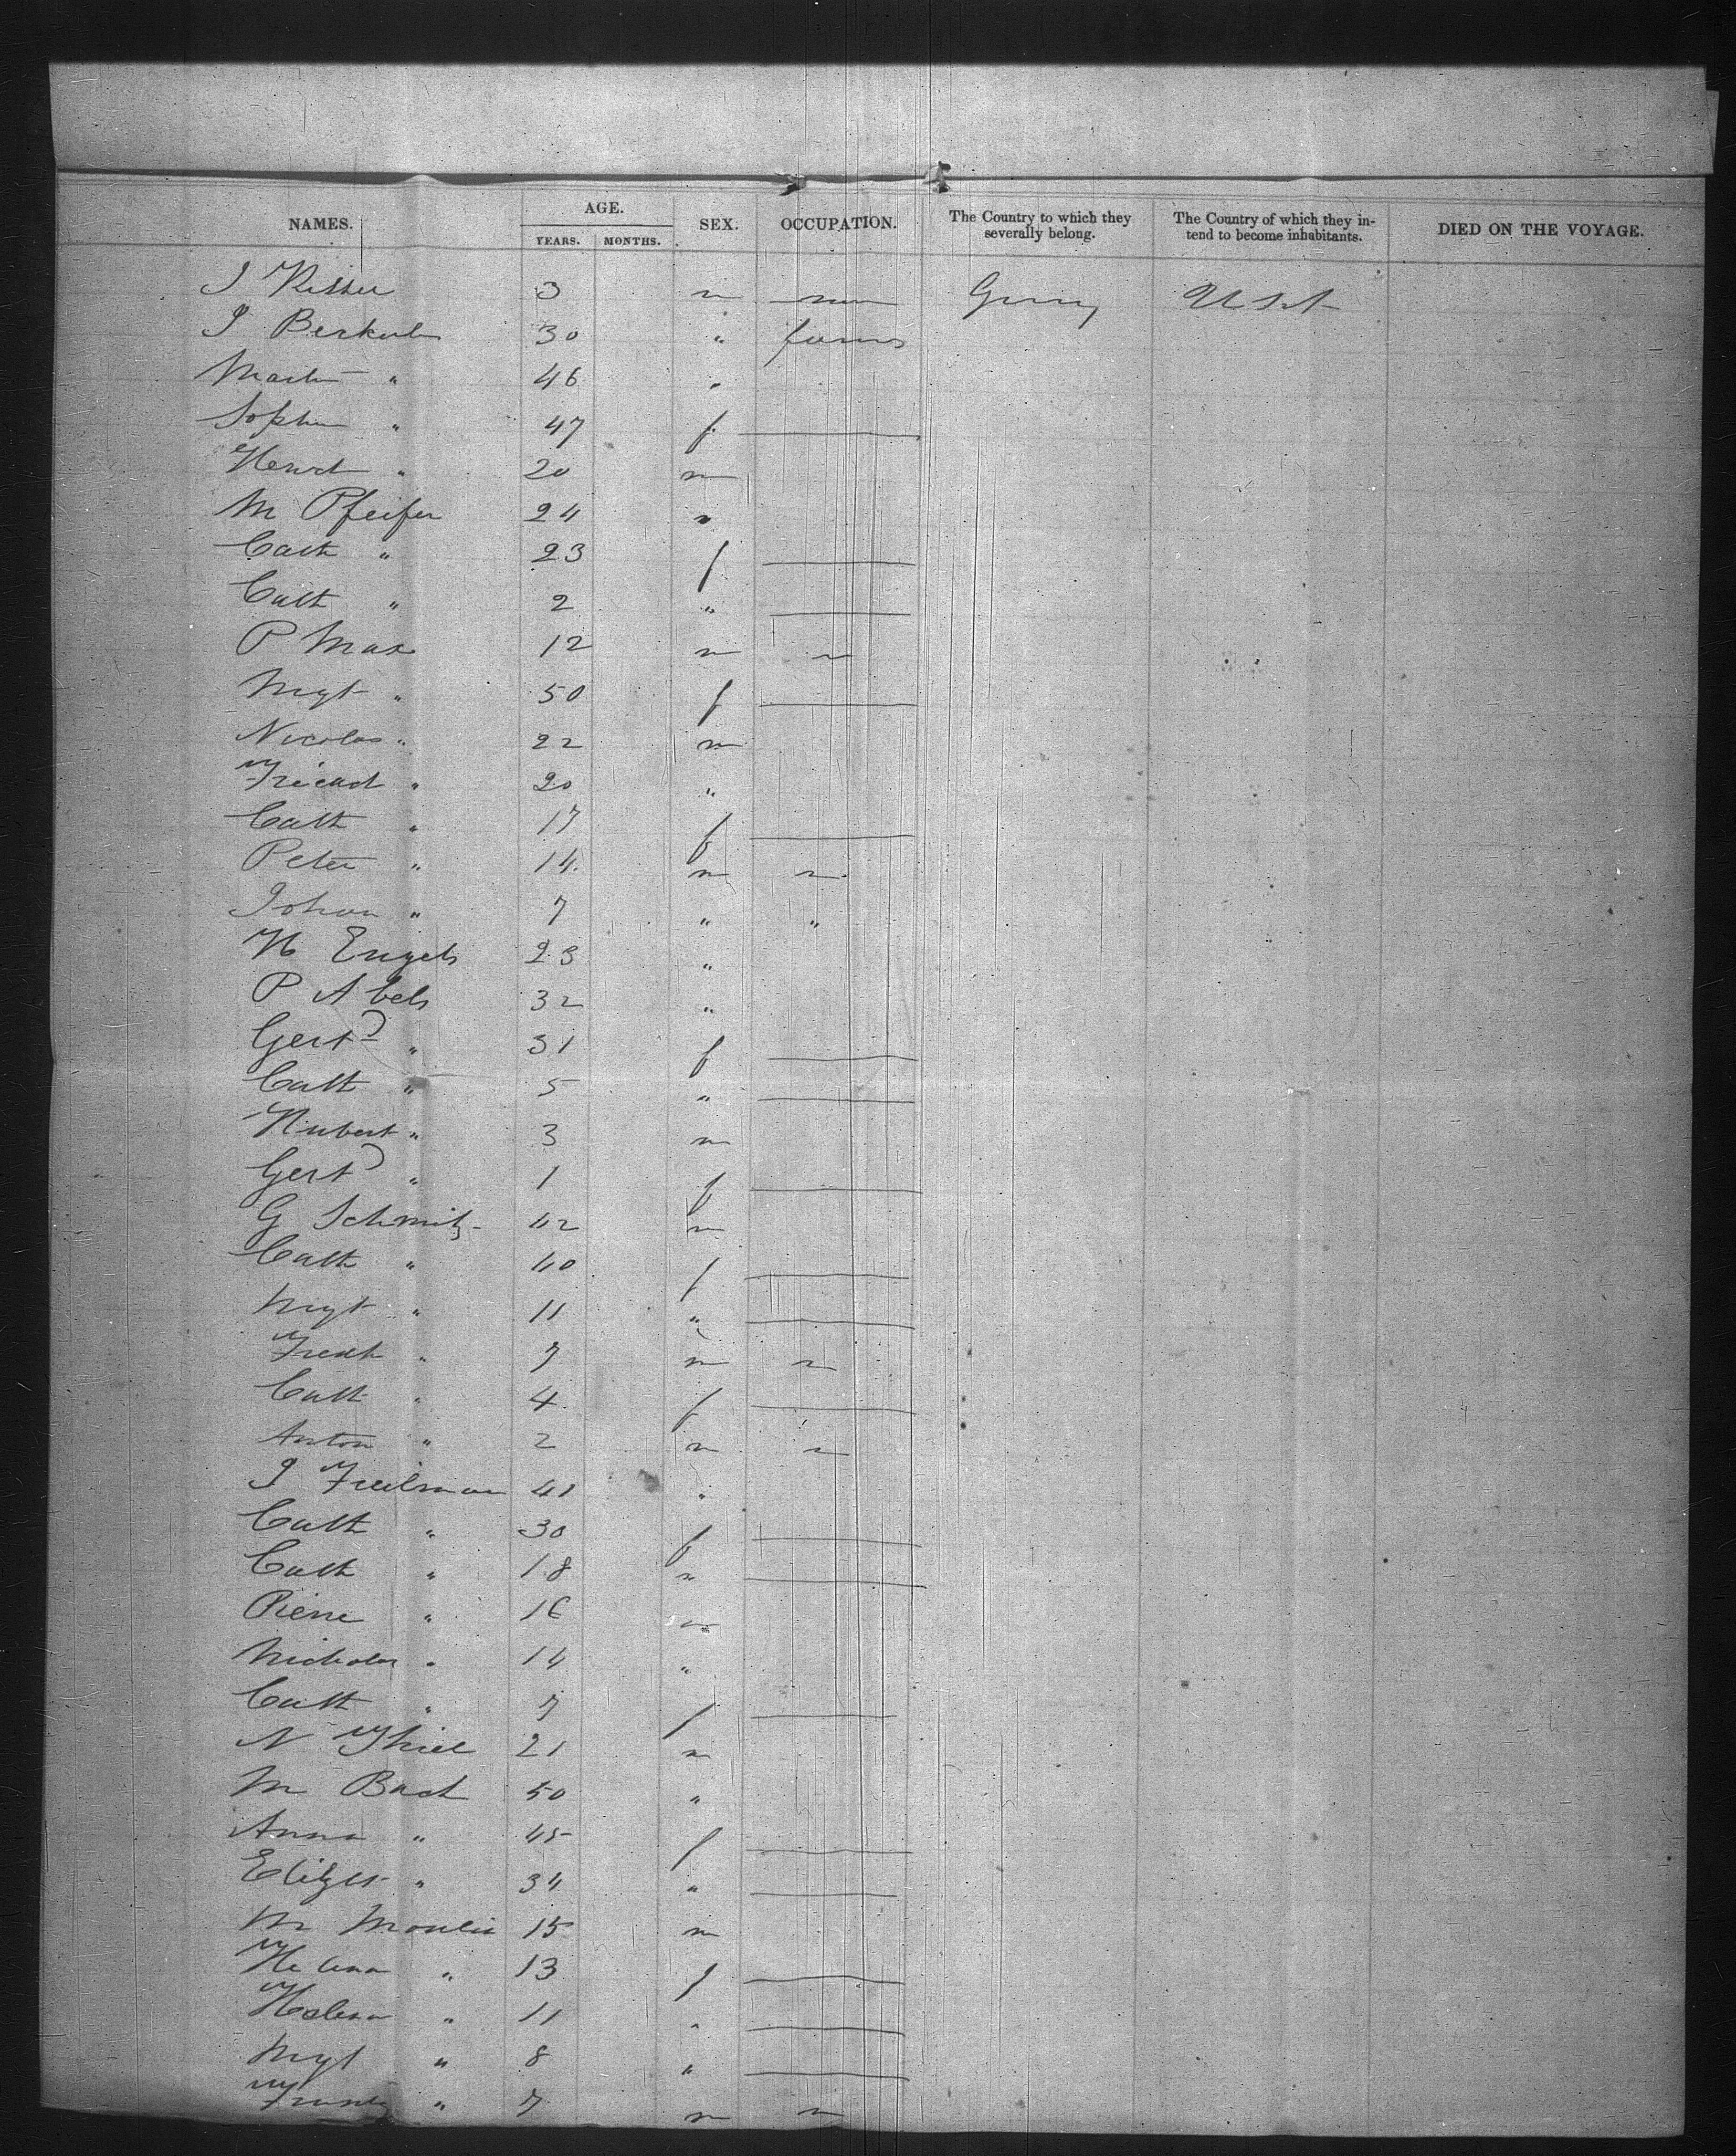 NAMES. AGE. YEARS. MONTHS. SEX. OCCUPATION. The Country to which they severally belong. The Country of which they intend to become inhabitants. DIED ON THE VOYAGE.
J 3 m Germy USA
J 30 " farmer
" 46 "
Sophie " 47 f
" 20 m
M Pfeifer 24 "
Cath " 23 f
Cath " 2 "
P Max 12 m
Mgt " 50 f
Nicolas " 22 m
" 20 "
Cath " 17 f
Peter " 14 m
Johan " 7 " "
H Engels 23 "
P Abels 32 "
Gertd " 31 f
Cath " 5 "
Hubert " 3 m
Gertd " 1 f
G Schmitz 42 m
Cath " 40 f
Mgt " 11 "
" 7 m
Cath " 4 f
Anton " 2 m
J 41 "
Cath " 30 f
Cath " 18 "
Pierre " 16 m
Nicholas " 14 "
Cath " 7 f
N Thiel 21 m
M Bach 50 "
Anna " 45 f
" 34 "
M 15 m
Helena " 13 f
Helena " 11 "
Mgt " 8 "
" 7 m